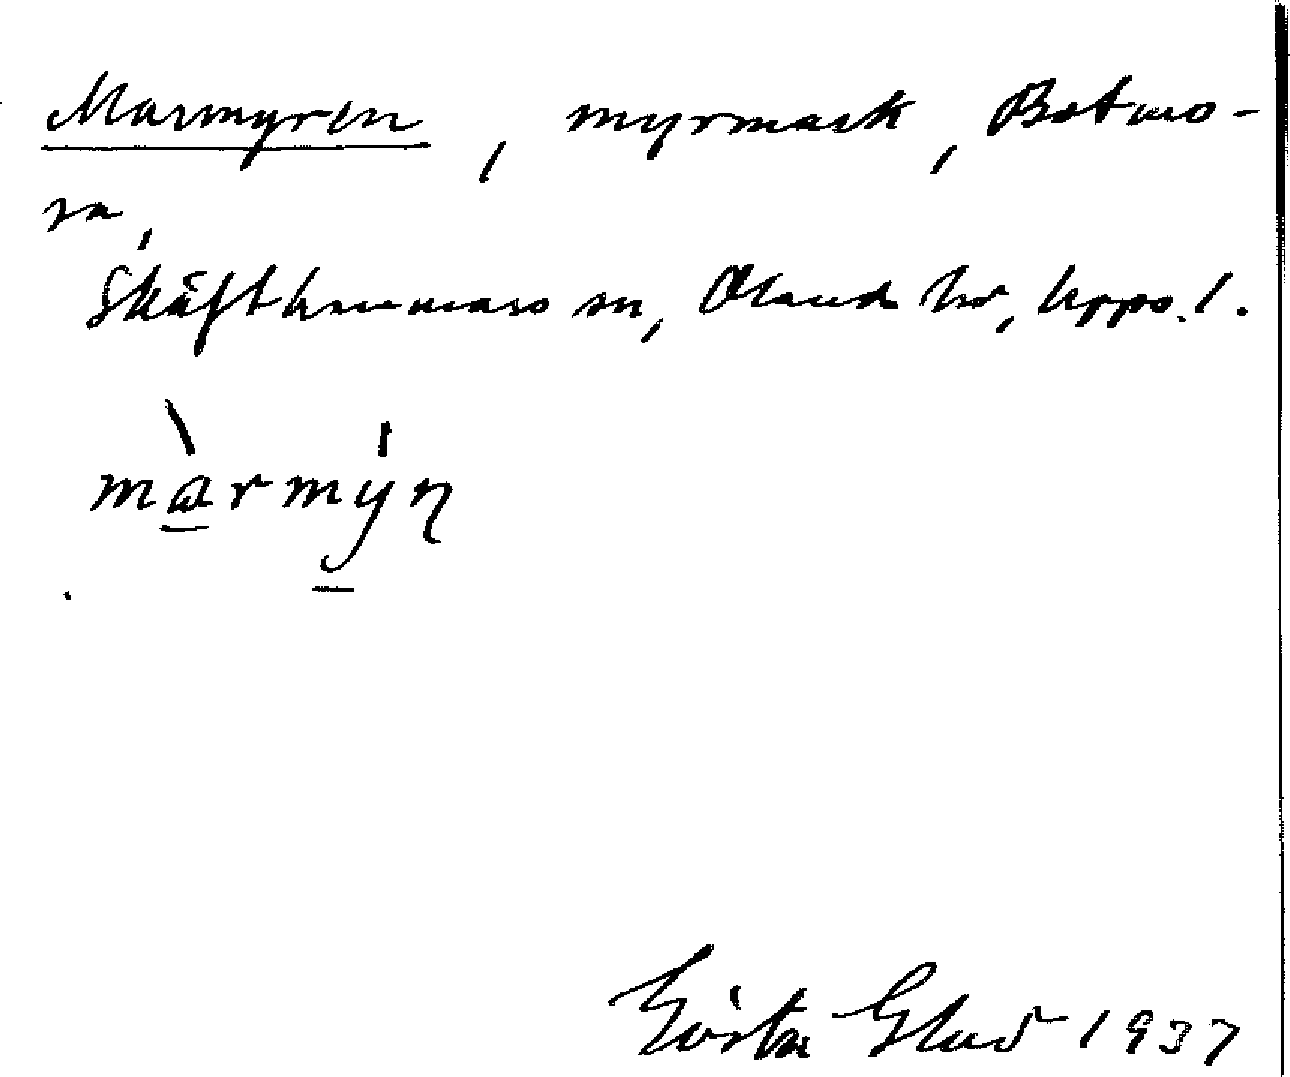 Marmyren, myrmark, Botmo-
ra,
Skäfthammars sn, Olands hd, Upps. l.
màrmýn
Gösta Glad 1937